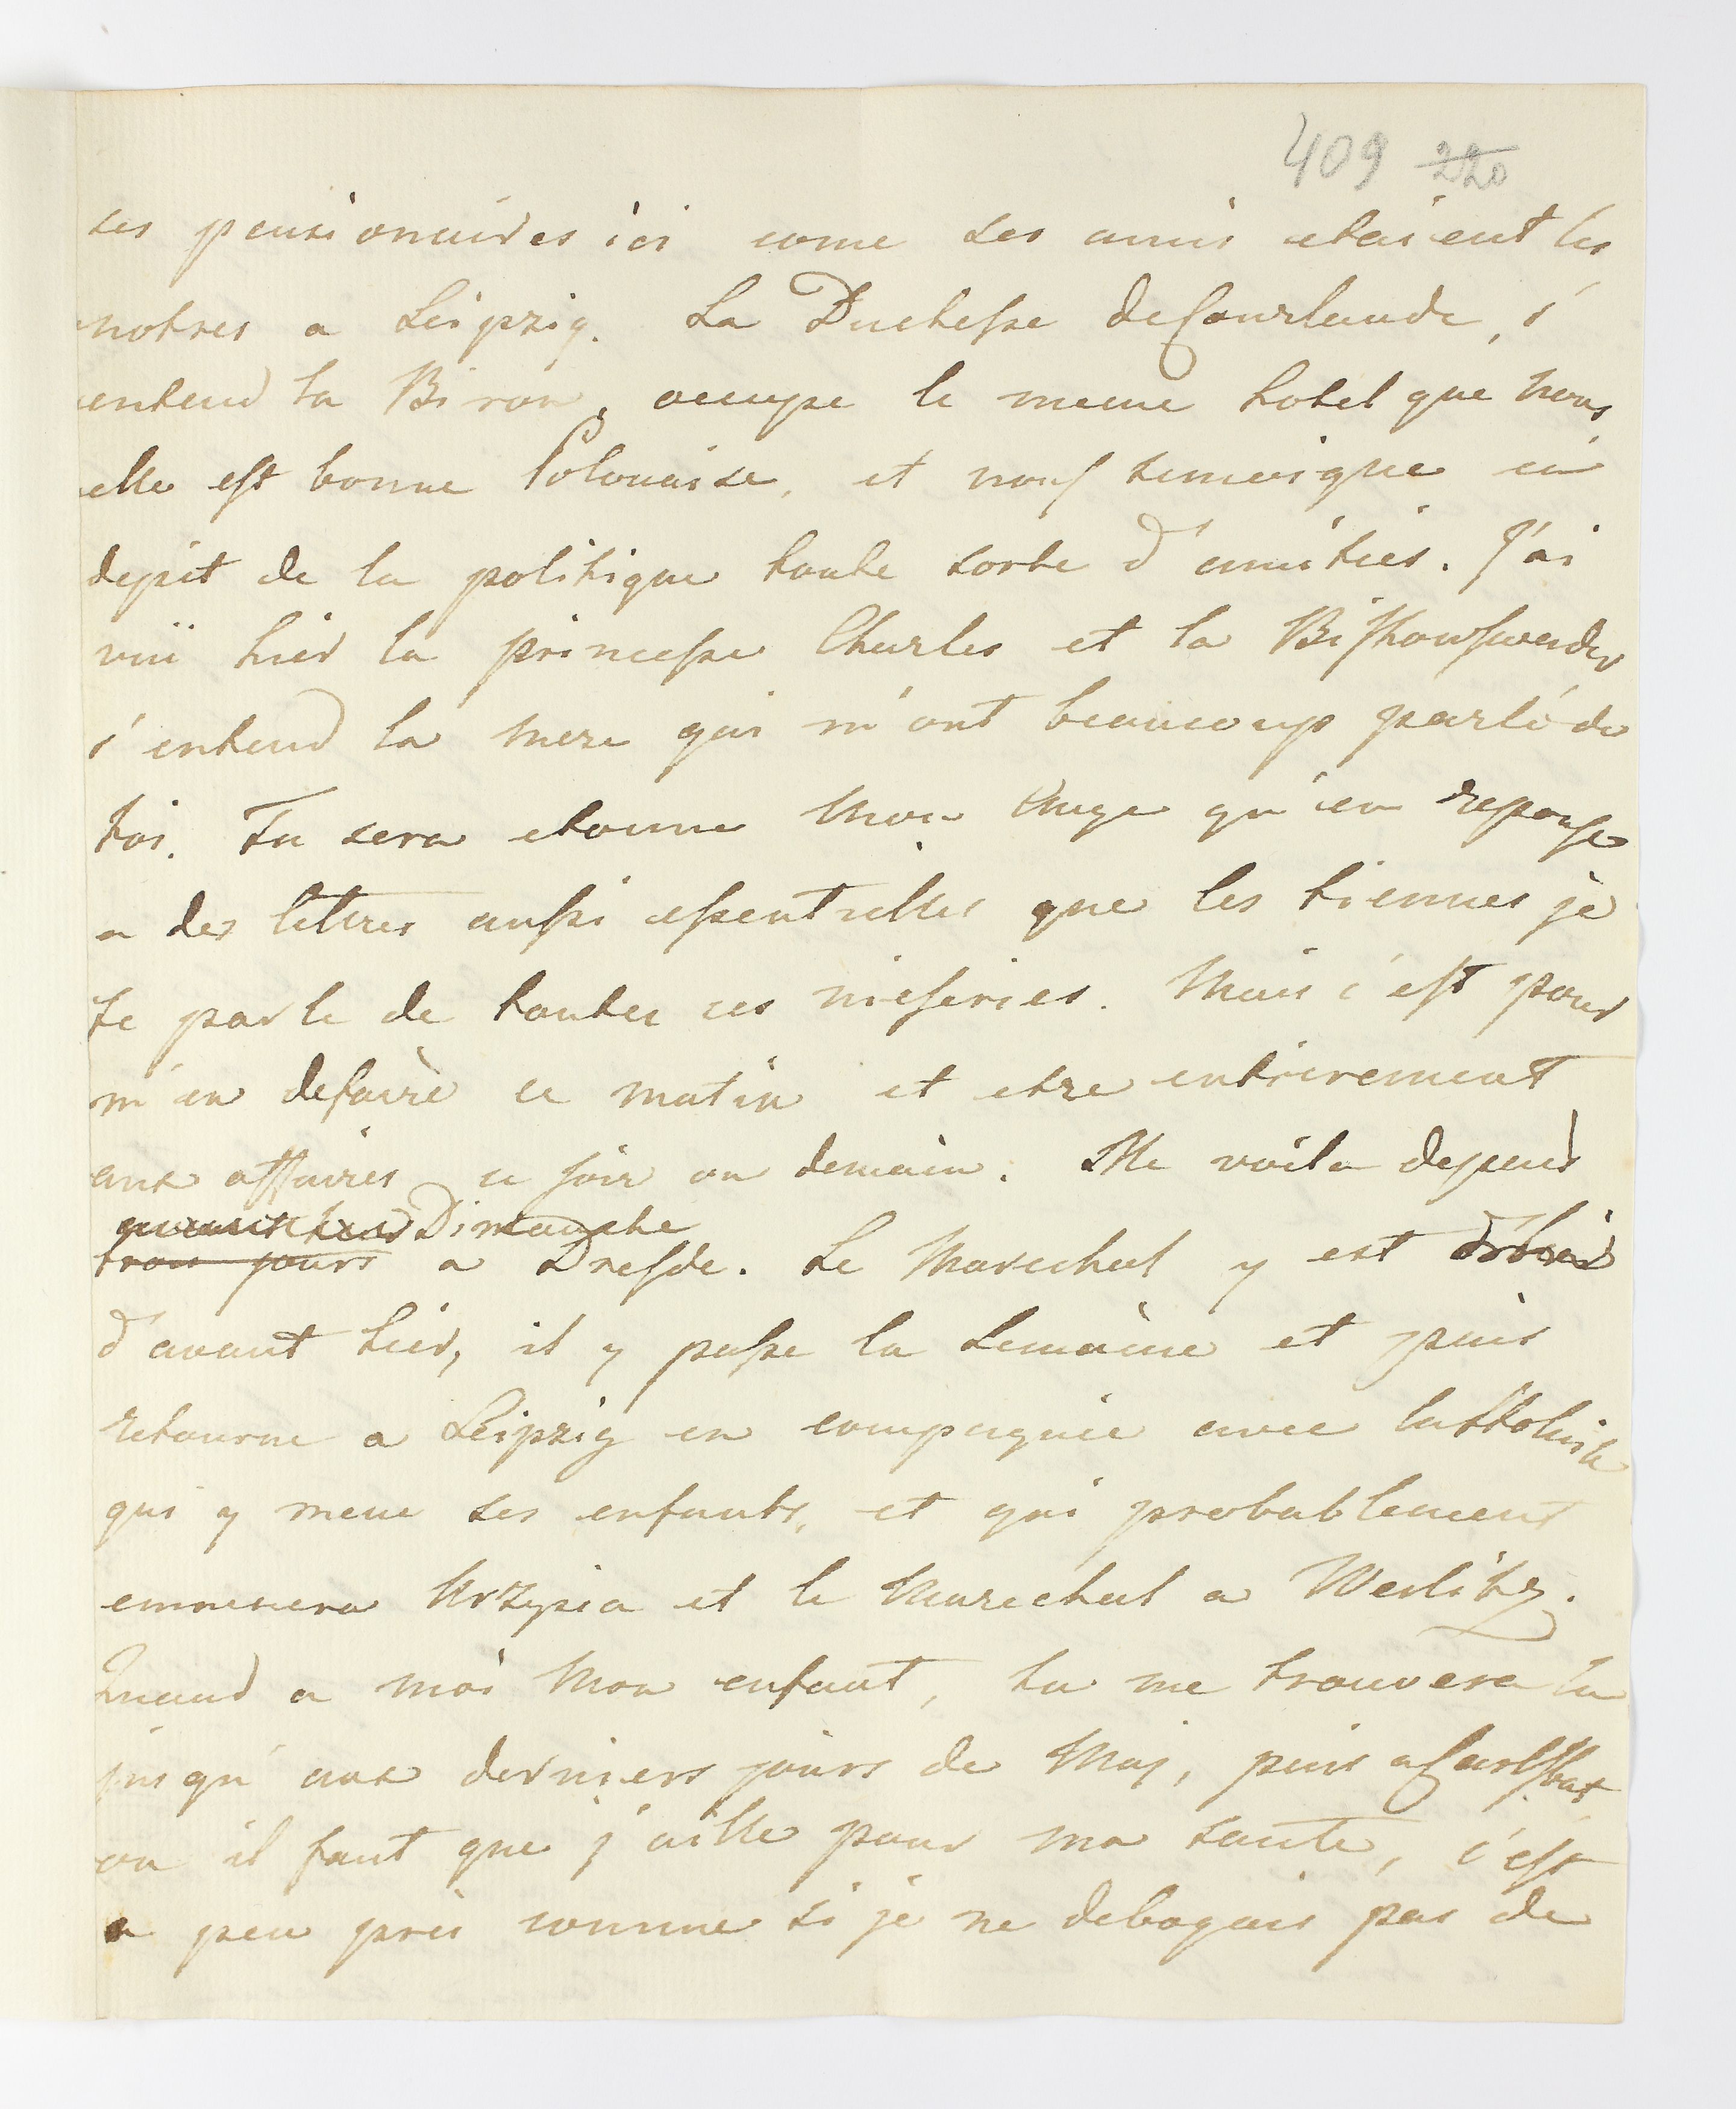 409 220
ses pensionaires ici come ses amis etaient les
notres a Leipzig. La Duchesse de Courlande, s'
entend la Biron, occupe le meme hotel que nous
elle est bonne Polonaise, et nous temoigne en
depit de la politique toute sorte d'amities. J'ai
vüi hier la princesse Charles et la Bishowswerder
s'entend la mere qui m'ont beaucoup parlé de
toi. Tu sera etonne Mon Ange qu'en reponse
a des lettres aussi essentielles que les tiennes je
te parle de toutes ces nieseries. Mais c'est pour
m'en defaire ce matin et etre entierement
aux affaires ce soir ou demain. Me voila depuis
Dimanche
trois jours a Dresde. Le Marechal y est
d'avant hier, il y passe la semaine et puis
retourne a Leipzig en compagnie avec
qui y mene ses enfants, et qui probablement
emmenera Krzysia et le Marechal a Werlitz.
Quand a moi Mon enfant, tu me trouvera la
jusqu'aux derniers jours de Maj, puis a Carlsbat
ou il faut que j'aille pour ma santé, c'est
a peu pres comme si je ne debogais pas de